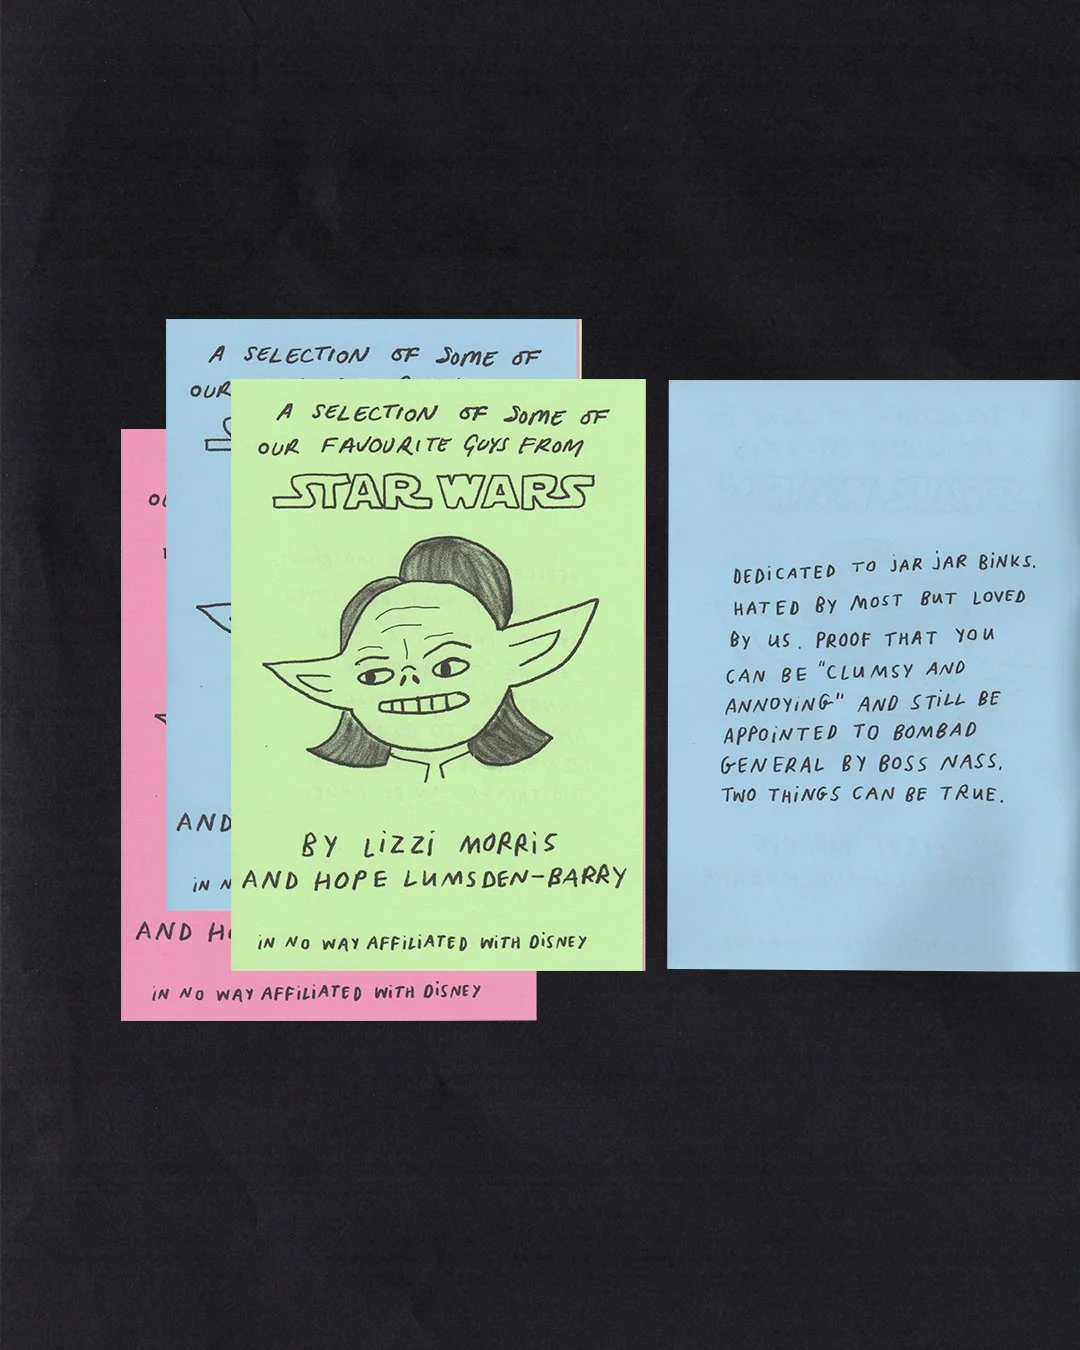 A SELECTION OF SOME OF
OUR
AND
IN N
AND HO
IN NO WAY AFFILIATED WITH DISNEY
A SELECTION OF SOME OF
OUR FAVOURITE GUYS FROM
STAR WARS
BY LIZZI MORRIS
AND HOPE LUMSDEN-BARRY
IN NO WAY AFFILIATED WITH DISNEY
DEDICATED TO JAR JAR BINKS.
HATED BY MOST BUT LOVED
BY US. PROOF THAT YOU
CAN BE "CLUMSY AND
ANNOYING" AND STILL BE
APPOINTED TO BOMBAD
GENERAL BY BOSS NASS.
TWO THINGS CAN BE TRUE.